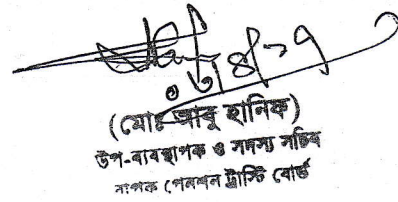 (মোঃ আবু হানিফ)
উপ-ব্যবস্থাপক ও সদস্য সচিব
বাপক পেনশন ট্রাস্টি বোর্ড